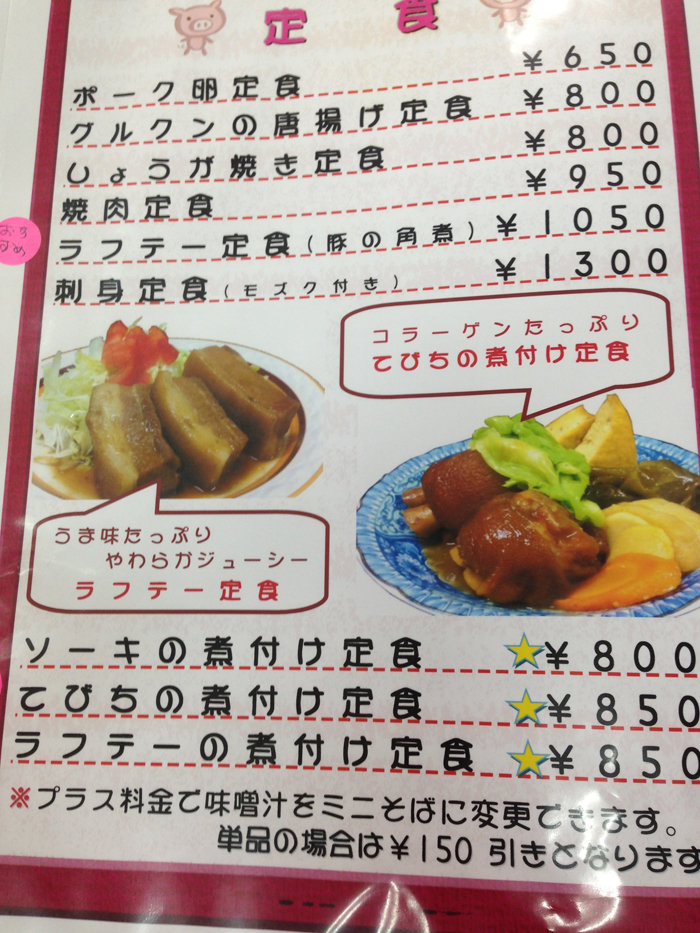 定食
ポーク卵定食 ¥650
グルクンの唐揚げ定食 ¥800
しょうが焼き定食 ¥800
焼肉定食 ¥950
ラフテー定食(豚の角煮) ¥1050
刺身定食(モズク付き) ¥1300
おす
すめ
コラーゲンたっぷり
てびちの煮付け定食
うま味たっぷり
やわらかジューシー
ラフテー定食
ソーキの煮付け定食 ★¥800
てびちの煮付け定食 ★¥850
ラフテーの煮付け定食 ★¥850
※プラス料金で味噌汁をミニそばに変更できます。
単品の場合は¥150引きとなります